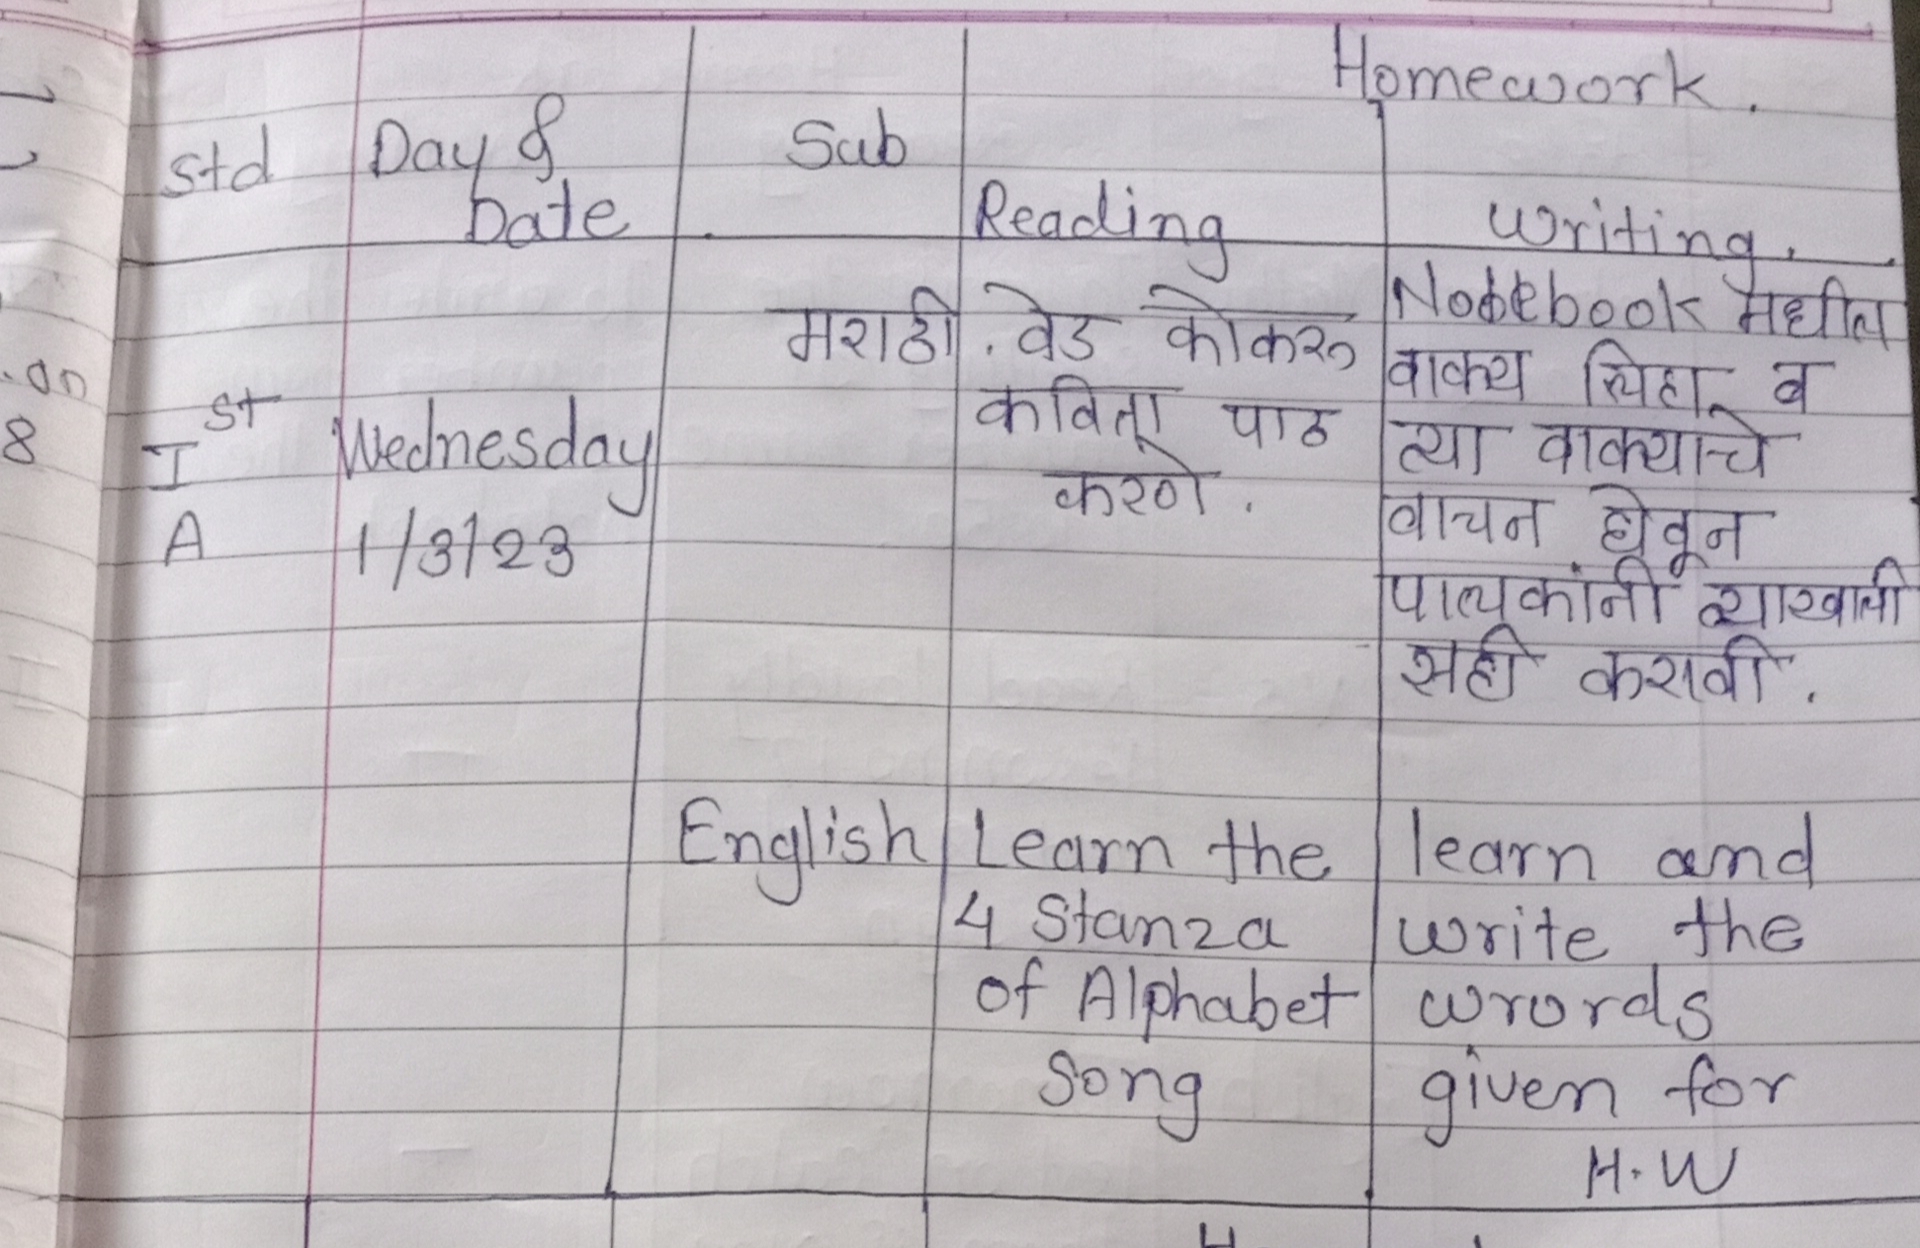 Homework.
Std Day & Sub
Date Reading Writing.
मराठी. वेड कोकरू
कविता पाठ
करणे.
Notebook मधील
वाक्य लिहा व
त्या वाक्याचे
वाचन घेवून
पालकांनी त्याखाली
सही करावी.
I st Wednesday
A 1/3/23
English Learn the
4 Stanza
of Alphabet
Song
learn and
write the
wrords
given for
H.W
8